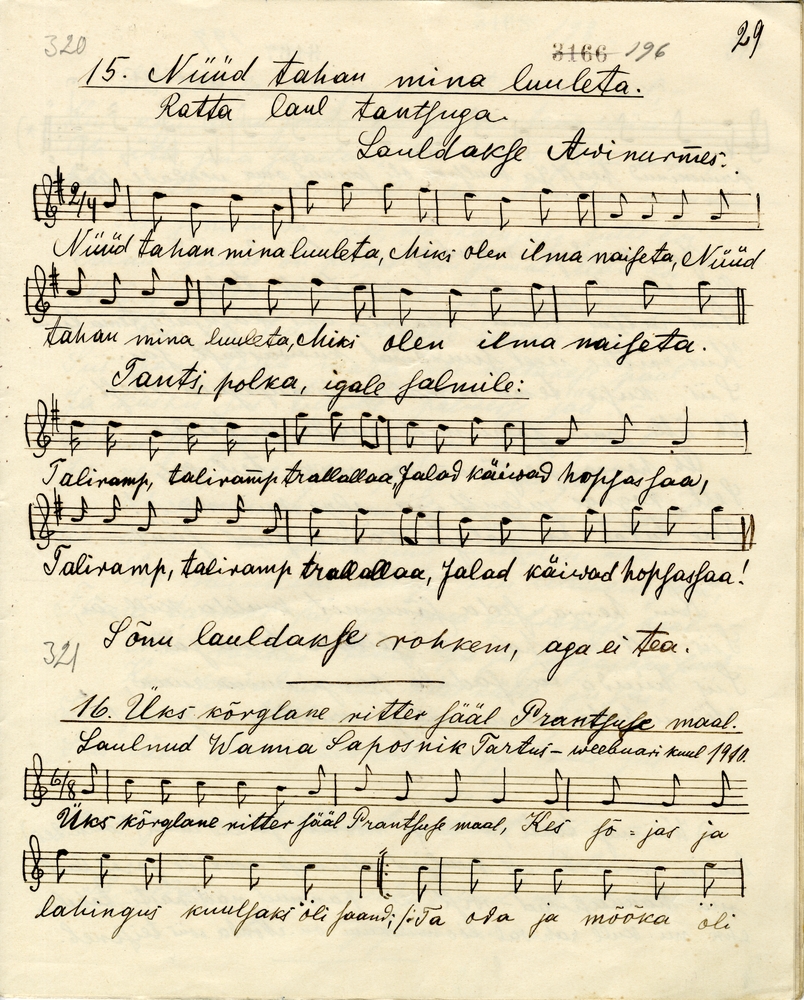 320 3166 196 29
15. Nüüd tahan mina luuleta.
Ratta laul tantsuga.
Lauldakse Awinurmes.
2/4
Nüüd tahan mina luuleta, Miks olen ilma naiseta, Nüüd
tahan mina luuleta, Miks olen ilma naiseta.
Tants, polka, igale salmile:
Taliramp, taliramp trallallaa, Jalad käiwad hopsassaa,
Taliramp, taliramp trallallaa, Jalad käiwad hopsassaa!
Sõnu lauldakse rohkem, aga ei tea.
321
16. Üks kõrglane ritter sääl Prantsuse maal.
Laulnud Wanna Saposnik Tartus – weebuari kuul 1910.
6/8
Üks kõrglane ritter sääl Prantsuse maal, Kes sõ - jas ja
lahingus kuulsaks oli saand; /: Ta oda ja mõõka oli